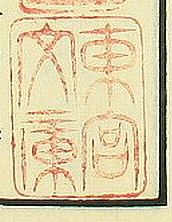 東宮
文庫